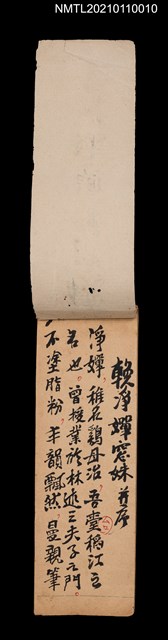 NMTL20210110010
輓淨嬋窓妹 并序
淨嬋 稚名鷄母治 吾臺稻江之
者也 曾授業於林述三夫子之門
不塗脂粉 丰韻飄然 曼觀筆